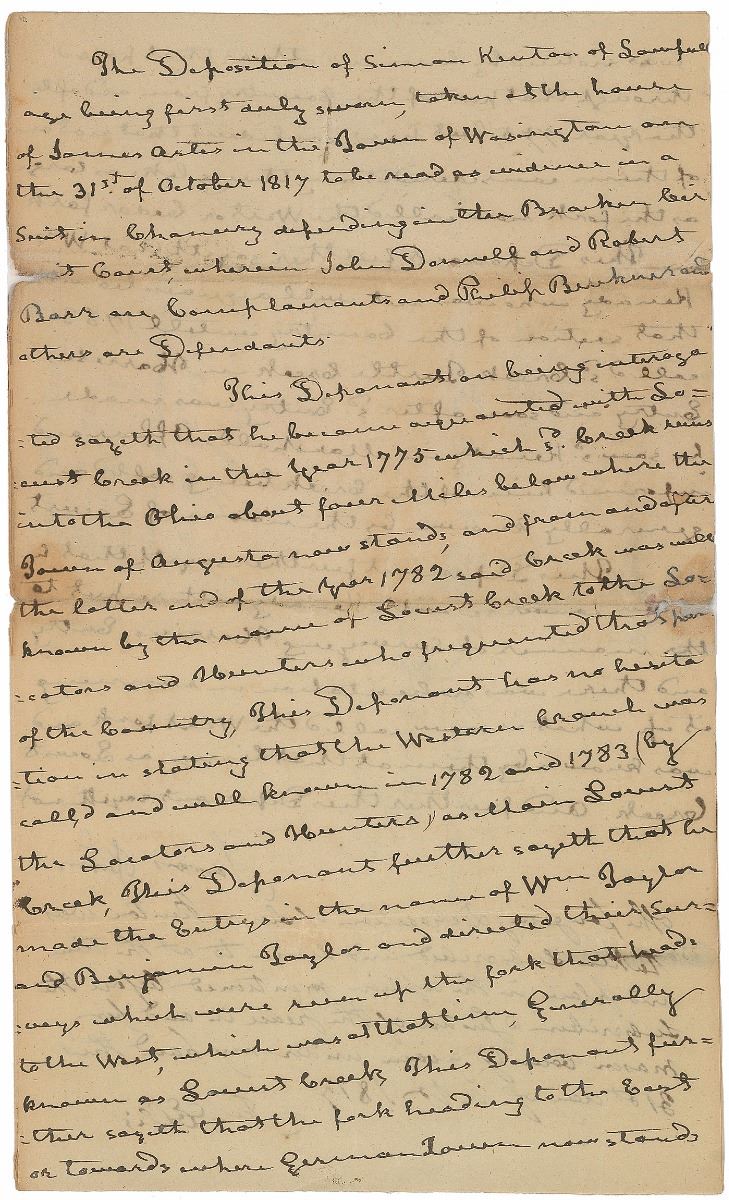 The Deposition of Simon Kenton of Lawfull
age being first duly sworn, taken at the house
of James Artes in the Town of Wasington on
the 31st of October 1817 to be read as evidence in a
Suit in Chancery depending in the Bracken Cir
it Court, wherein John Donnell and Robert
Barr are Complainants and Philip and
others are Defendants
This Deponant on being interoga
:ted sayeth that he became acquainted with Lo=
:cust Creek in the Year 1775 which sd. Creek runs
into the Ohio about four Miles below where the
Town of Augusta now stands, and from and after
the latter end of the Year 1782 said Creek was well
known by the name of Locust Creek to the Lo=
:cators and Hunters who frequented that par
of the Country, This Deponant has no hesita
:tion in stating that the Western branch was
call,d and well known in 1782 and 1783 (by
the Locators and Hunters) as Main Locust
Creek, This Deponant further sayeth that he
made the Entrys in the name of Wm Taylor
and Benjamin Taylor and directed their Sur=
:veys which were run up the fork that heads
to the West, which was at that time, Generally
known as Locust Creek, This Deponant fur=
:ther sayeth that the fork heading to the East
or towards where German Town now stands